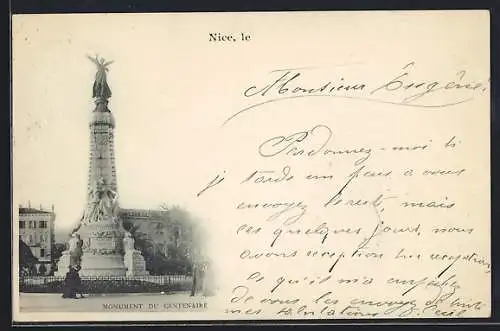 Nice, le
Monsieur Eugène,
Pardonnez-moi si
je tarde un peu à vous
envoyer le reste, mais
ces quelques jours, nous
avons réception
ce qui m'a empêché
de vous les envoyer
mes salutations
MONUMENT DU CENTENAIRE